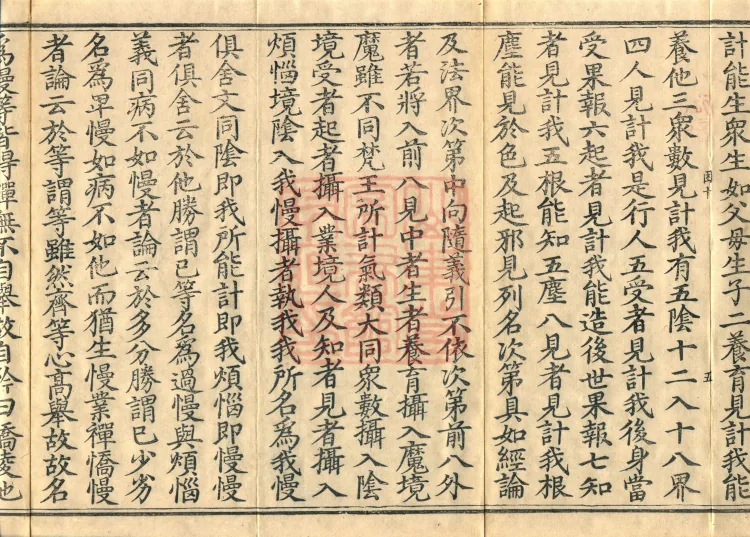 計能生衆生如父母生子二養育見計我能
養他三衆數見計我有五陰十二入十八界
四人見計我是行人五受者見計我後身當
受果報六起者見計我能造後世果報七知
者見計我五根能知五塵八見者見計我根
塵能見於色及起邪見列名次第具如經論
及法界次第中向隨義引不依次第前八外
者若將入前八見中者生者養育攝入魔境
魔雖不同梵王所計氣類大同衆數攝入陰
境受者起者攝入業境人及知者見者攝入
煩惱境陰入我慢攝者執我我所名爲我慢
俱舍文同陰即我所能計即我煩惱即慢慢
者俱舍云於他勝謂已等名爲過慢與煩惱
義同病不如慢者論云於多分勝謂已少劣
名爲卑慢如病不如他而猶生慢業禪憍慢
者論云於等謂等雖然齊等心高舉故故名
爲慢等皆得禪無不自舉故自矜曰憍陵他
五